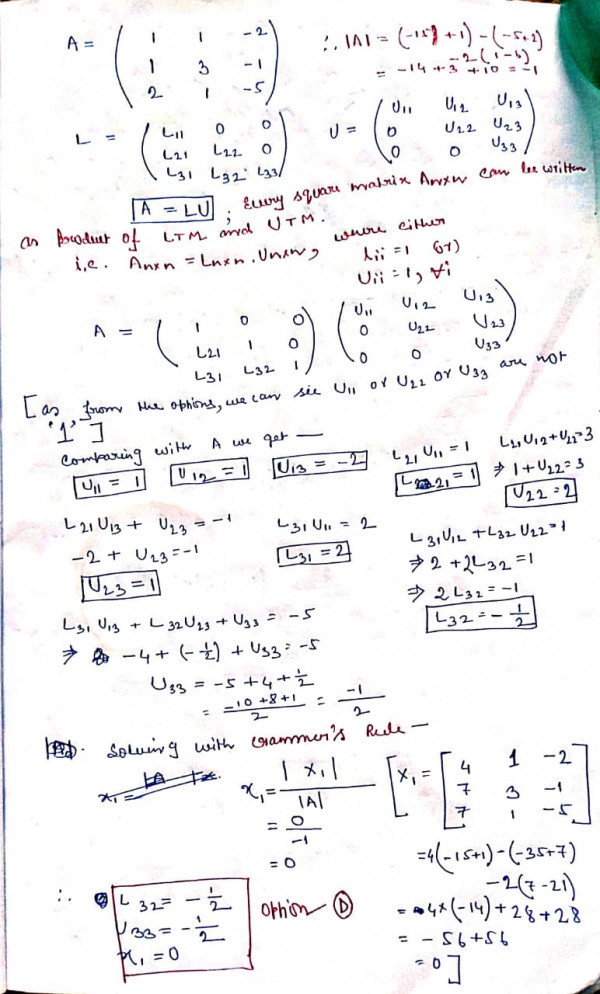 A = ( 1 1 -2
1 3 -1
2 1 -5 )
∴ |A| = (-15 + 1) - (-5+2)
-2(1-6)
= -14 + 3 + 10 = -1
L = ( L11 0 0
L21 L22 0
L31 L32 L33 )
U = ( U11 U12 U13
0 U22 U23
0 0 U33 )
A = LU ; Every square matrix Anxn can be written
as product of LTM and UTM.
i.e. Anxn = Lnxn . Unxn, where either
lii = 1 (or)
Uii = 1, ∀i
A = ( 1 0 0
L21 1 0
L31 L32 1 )
( U11 U12 U13
0 U22 U23
0 0 U33 )
[as from the options, we can see U11 or U22 or U33 are not
'1']
Comparing with A we get —
U11 = 1
U12 = 1
U13 = -2
L21 U11 = 1
L21 = 1
L21 U12 + U22 = 3
⇒ 1 + U22 = 3
U22 = 2
L21 U13 + U23 = -1
-2 + U23 = -1
U23 = 1
L31 U11 = 2
L31 = 2
L31 U12 + L32 U22 = 1
⇒ 2 + 2L32 = 1
⇒ 2 L32 = -1
L32 = - 1/2
L31 U13 + L32 U23 + U33 = -5
⇒ -4 + (-1/2) + U33 = -5
U33 = -5 + 4 + 1/2
= -10 + 8 + 1 / 2 = -1/2
Solving with Crammer's Rule —
x1 = |X1| / |A|
= 0 / -1
= 0
[X1 = [ 4 1 -2
7 3 -1
7 1 -5 ]
= 4(-15+1) - (-35+7)
-2(7-21)
= 4×(-14) + 28 + 28
= -56 + 56
= 0 ]
∴ L32 = - 1/2
U33 = - 1/2
x1 = 0
Option D